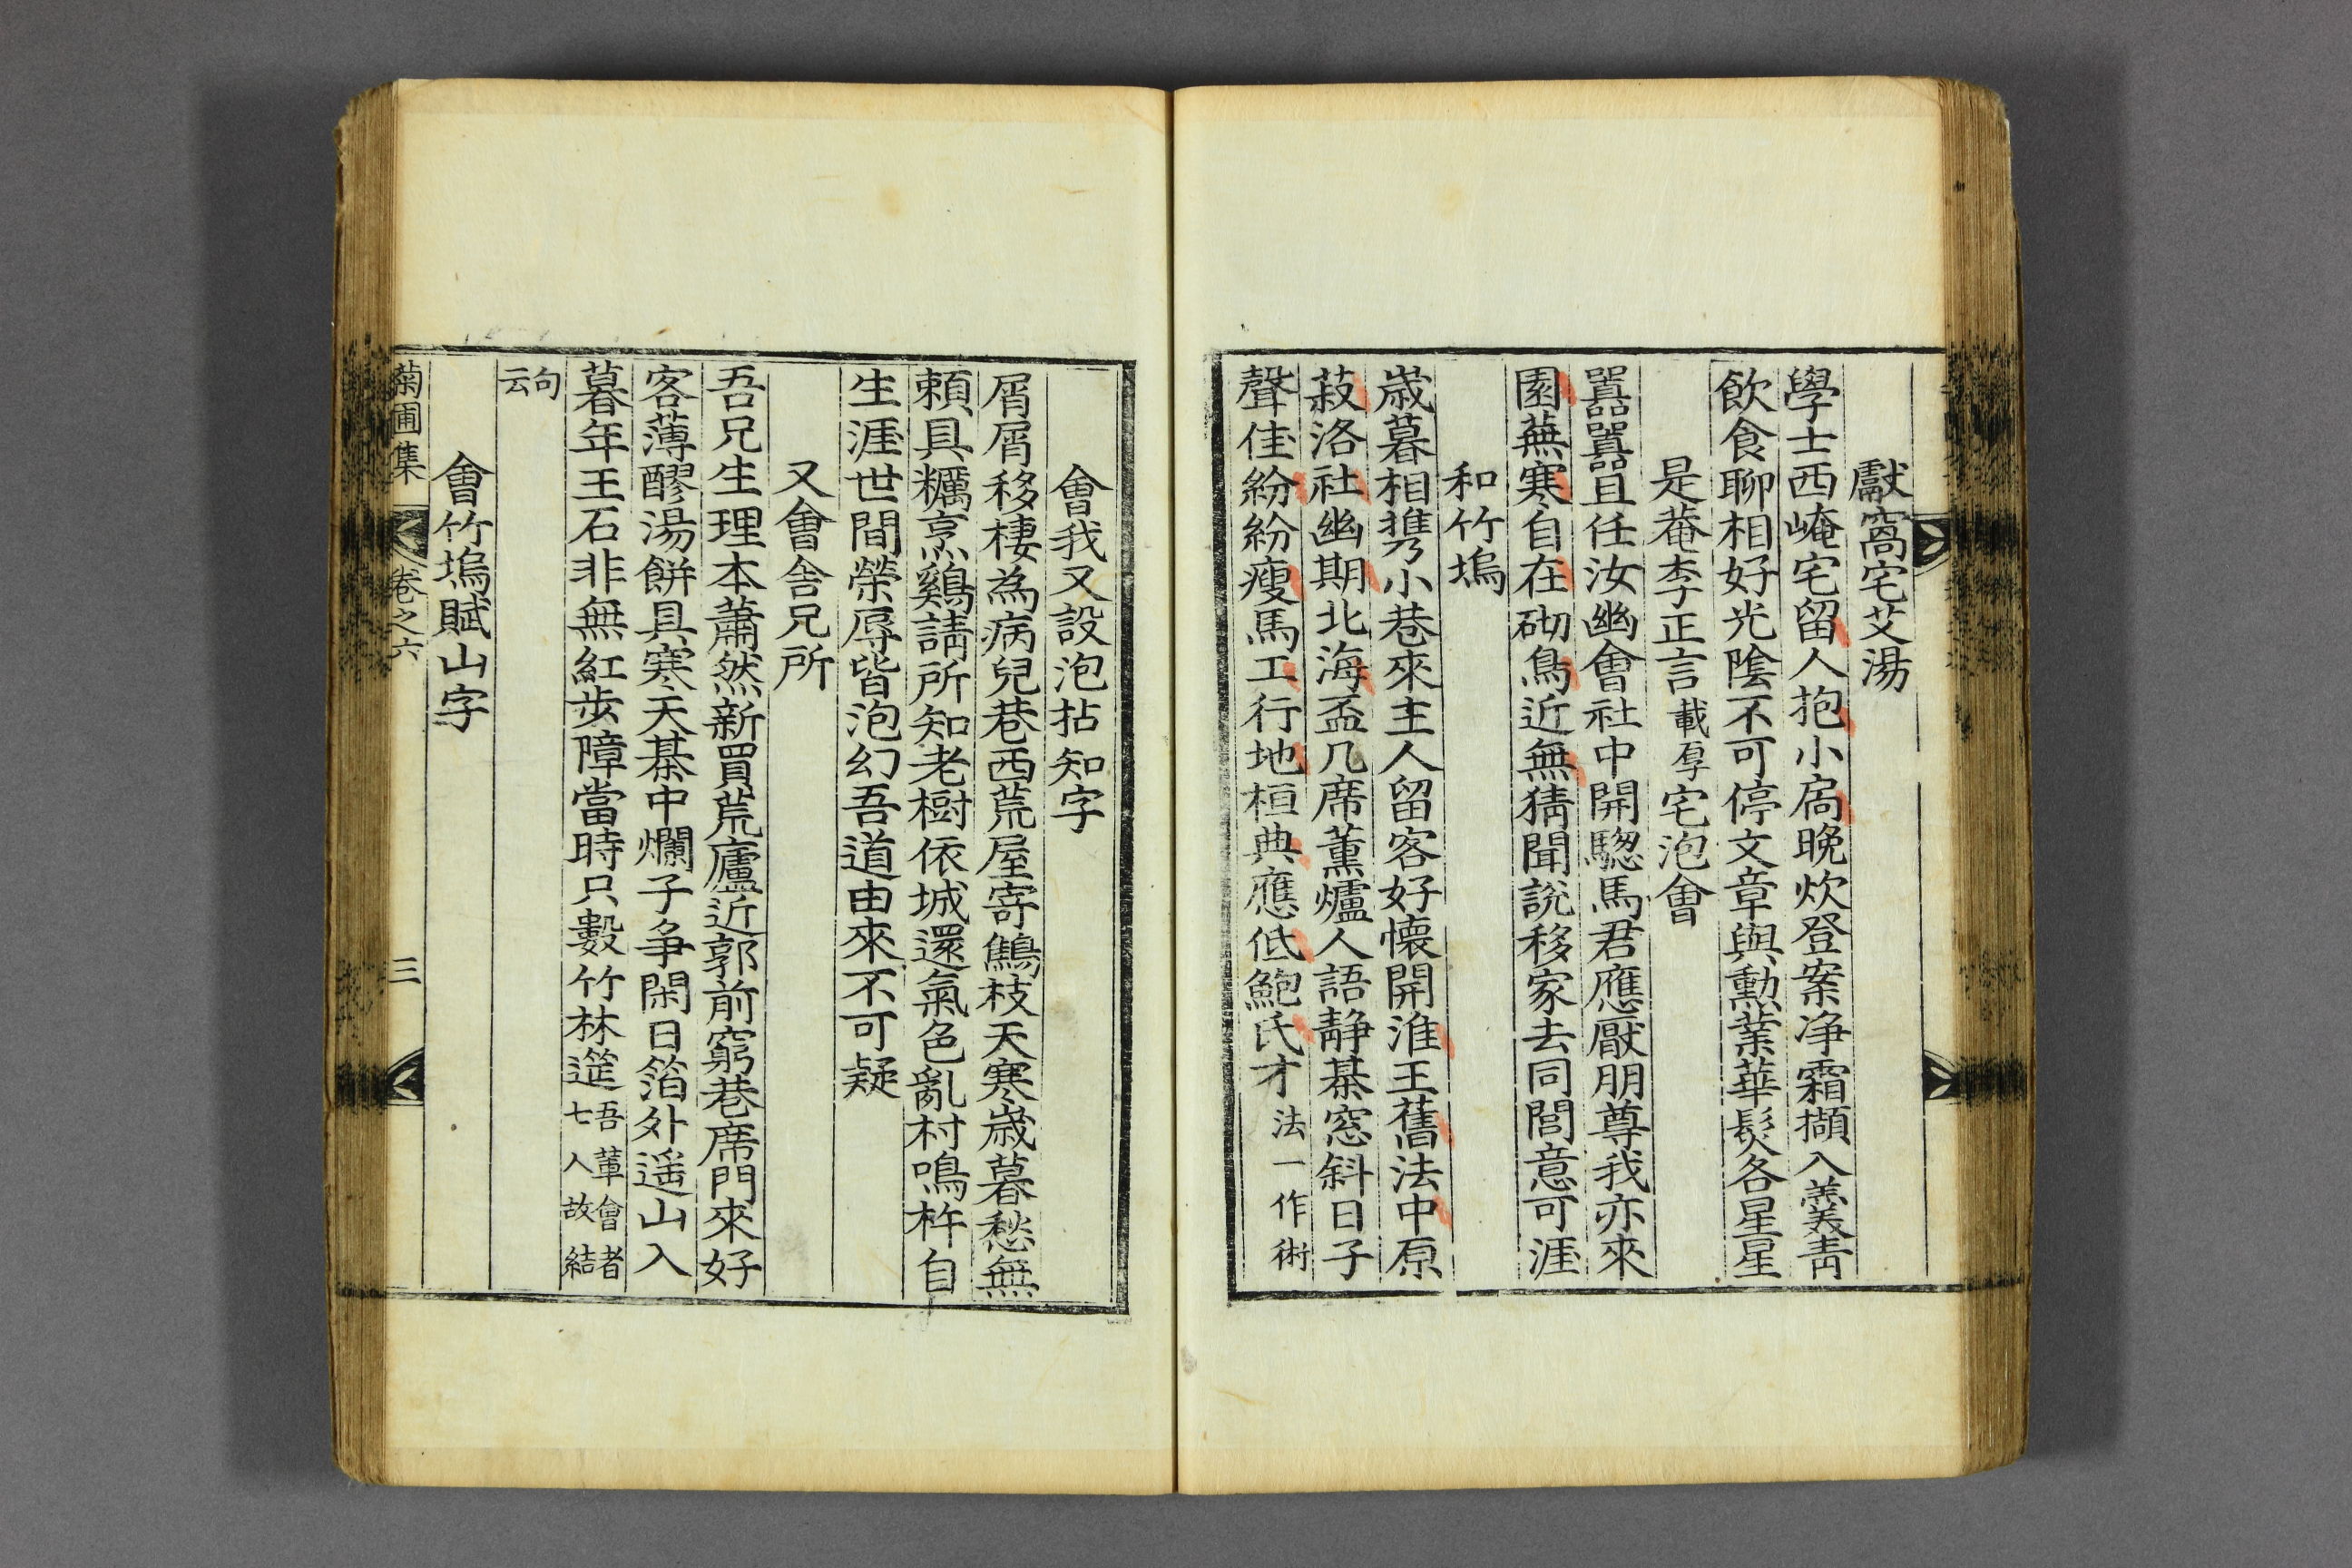 獻窩宅艾湯
學士西崦宅留人抱小扃晚炊登案净霜擷入羹靑
飮食聊相好光陰不可停文章與勳業華髮各星星
是菴李正言載厚宅泡會
嚣嚣且任汝幽會社中開騘馬君應厭朋尊我亦來
園蕪寒自在砌鳥近無猜聞說移家去同閭意可涯
和竹塢
歲暮相携小巷來主人留客好懷開淮王舊法中原
菽洛社幽期北海盃几席薰爐人語靜棊窓斜日子
聲佳紛紛瘦馬工行地桓典應低鮑氏才法一作術
會我又設泡拈知字
屑屑移棲為病兒巷西荒屋寄鷦枝天寒歲暮愁無
賴具糲烹鷄請所知老樹依城還氣色亂村鳴杵自
生涯世間榮辱皆泡幻吾道由來不可疑
又會舍兄所
吾兄生理本蕭然新買荒廬近郭前窮巷席門來好
客薄醪湯餅具寒天棊中爛子爭閑日箔外遥山入
暮年王石非無紅步障當時只數竹林筵吾軰會者七人故結
句云
會竹塢賦山字
菊圃集 卷之六 三